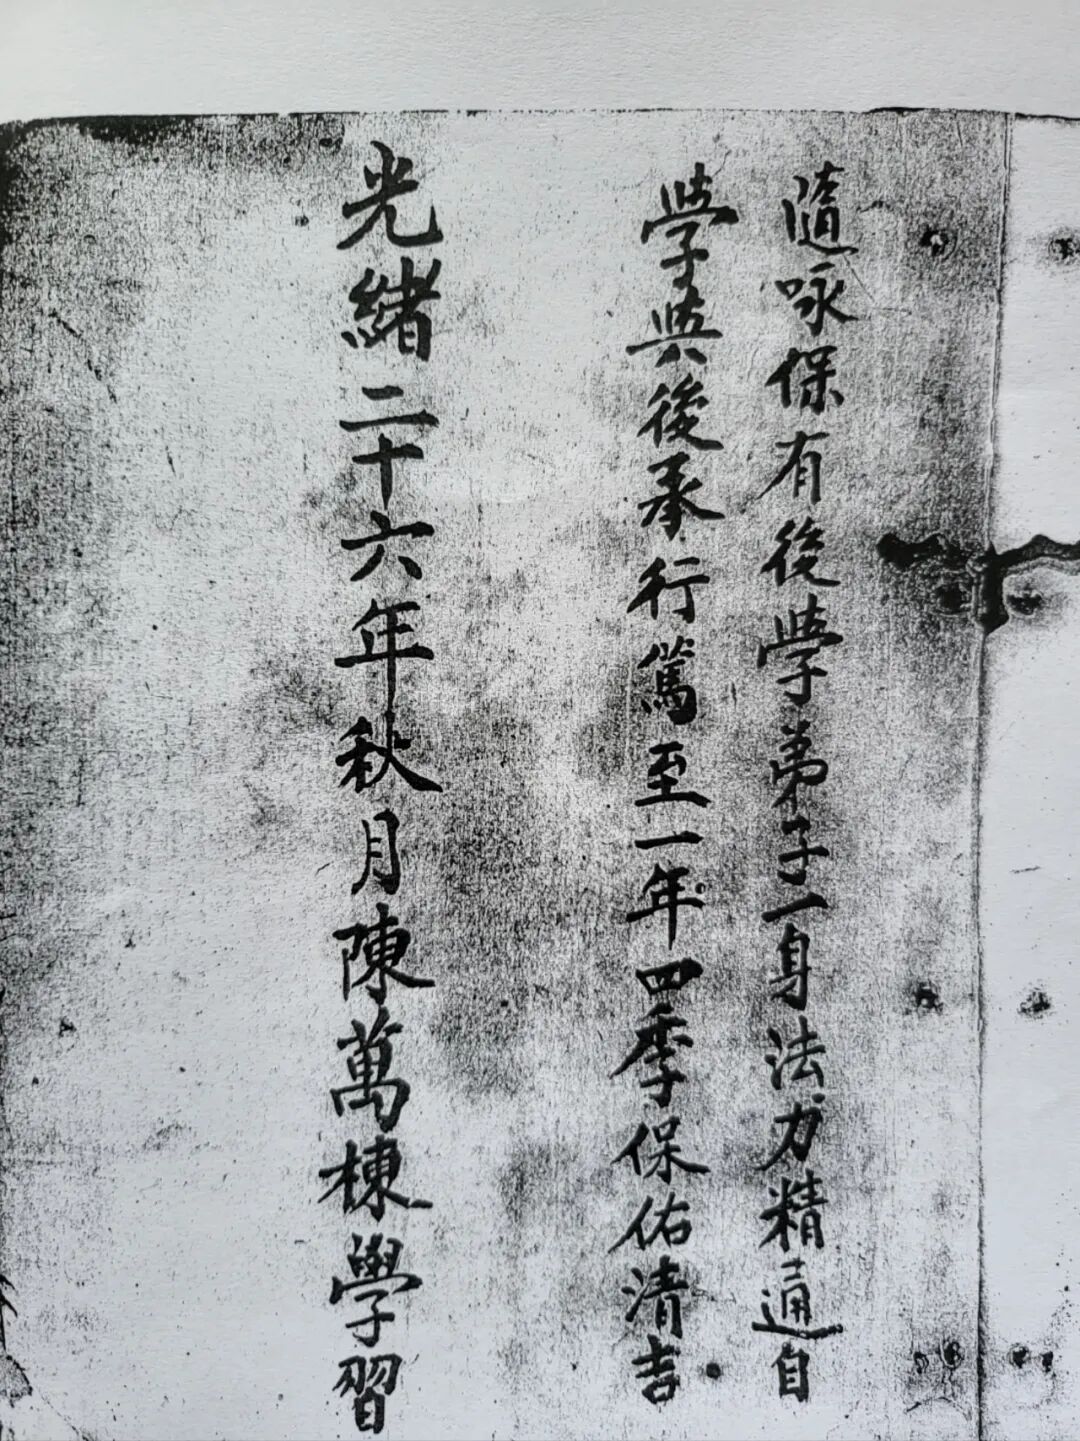 隨咏保有後學弟子一身法力精通自
學與後承行篤至一年四季保佑清吉
光緒二十六年秋月陳萬棟學習